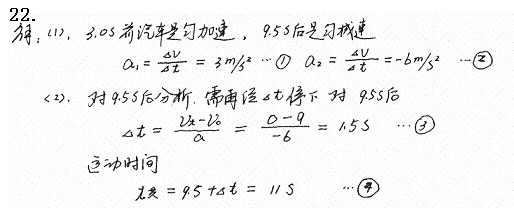 22.
解:(1). 3.0s前汽车是匀加速, 9.5s后是匀减速
a₁ = Δv/Δt = 3m/s² …① a₂ = Δv/Δt = -6m/s² …②
(2). 对9.5s后分析. 需再经Δt停下 对 9.5s后
Δt = (vₜ-v₀)/a = (0-9)/-6 = 1.5s …③
运动时间
t总 = 9.5+Δt = 11s …④